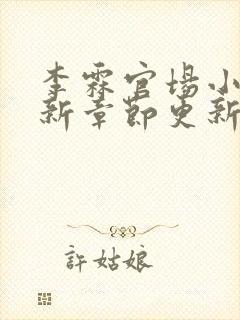 李霖官場小
新章節更新
許姑娘